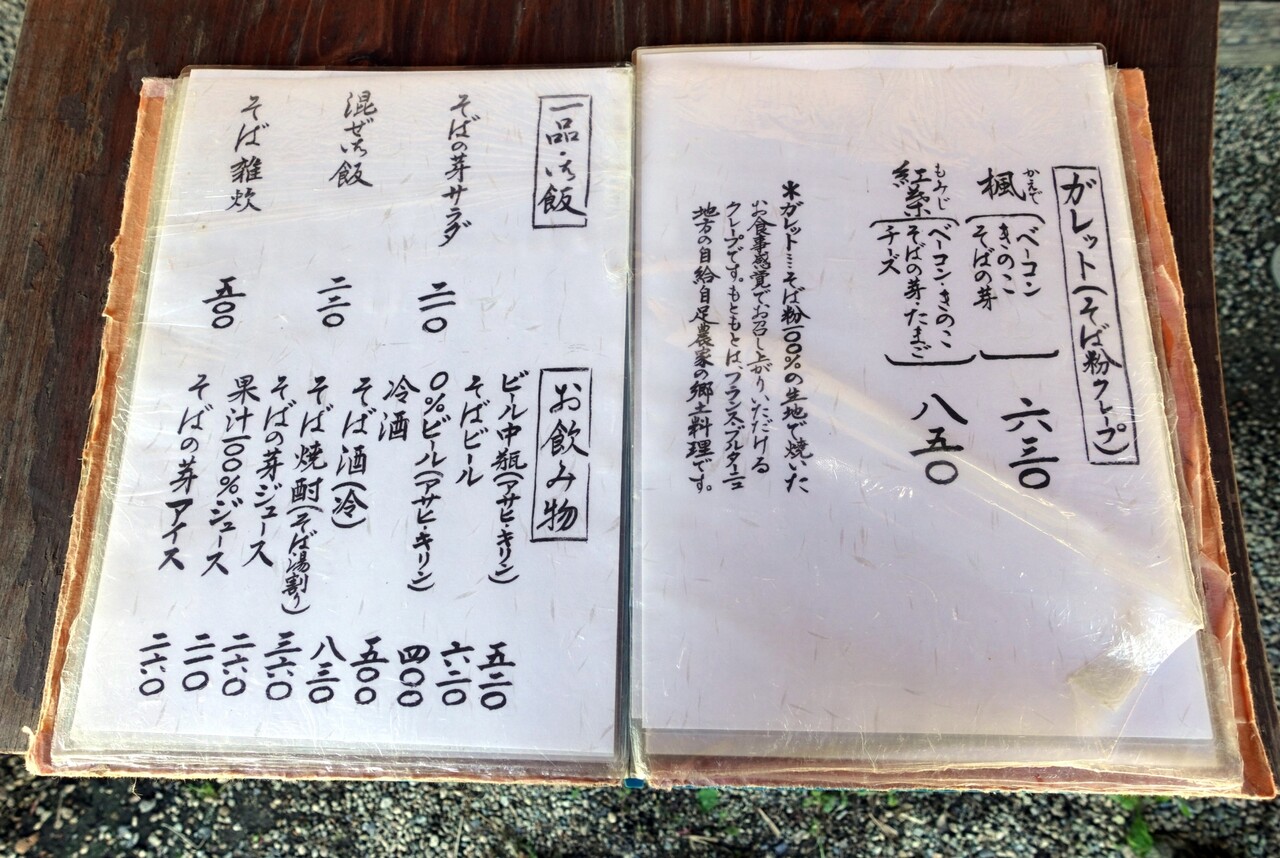 ガレット(そば粉クレープ)
かえで
楓
ベーコン
きのこ
そばの芽
六三〇
もみじ
紅葉
ベーコン・きのこ
そばの芽・たまご
チーズ
八五〇
*ガレット…そば粉一〇〇%の生地で焼いた
お食事感覚でお召し上がりいただける
クレープです。もともとは、フランス・ブルターニュ
地方の自給自足農家の郷土料理です。
一品・ご飯
そばの芽サラダ 二一〇
混ぜご飯 二二〇
そば雑炊 五〇〇
お飲み物
ビール中瓶(アサヒ・キリン) 五二〇
そばビール 六二〇
0%ビール(アサヒ・キリン) 四〇〇
冷酒 五〇〇
そば酒(冷) 八三〇
そば焼酎(そば湯割り) 三六〇
そばの芽ジュース 二六〇
果汁一〇〇%ジュース 二一〇
そばの芽アイス 二六〇